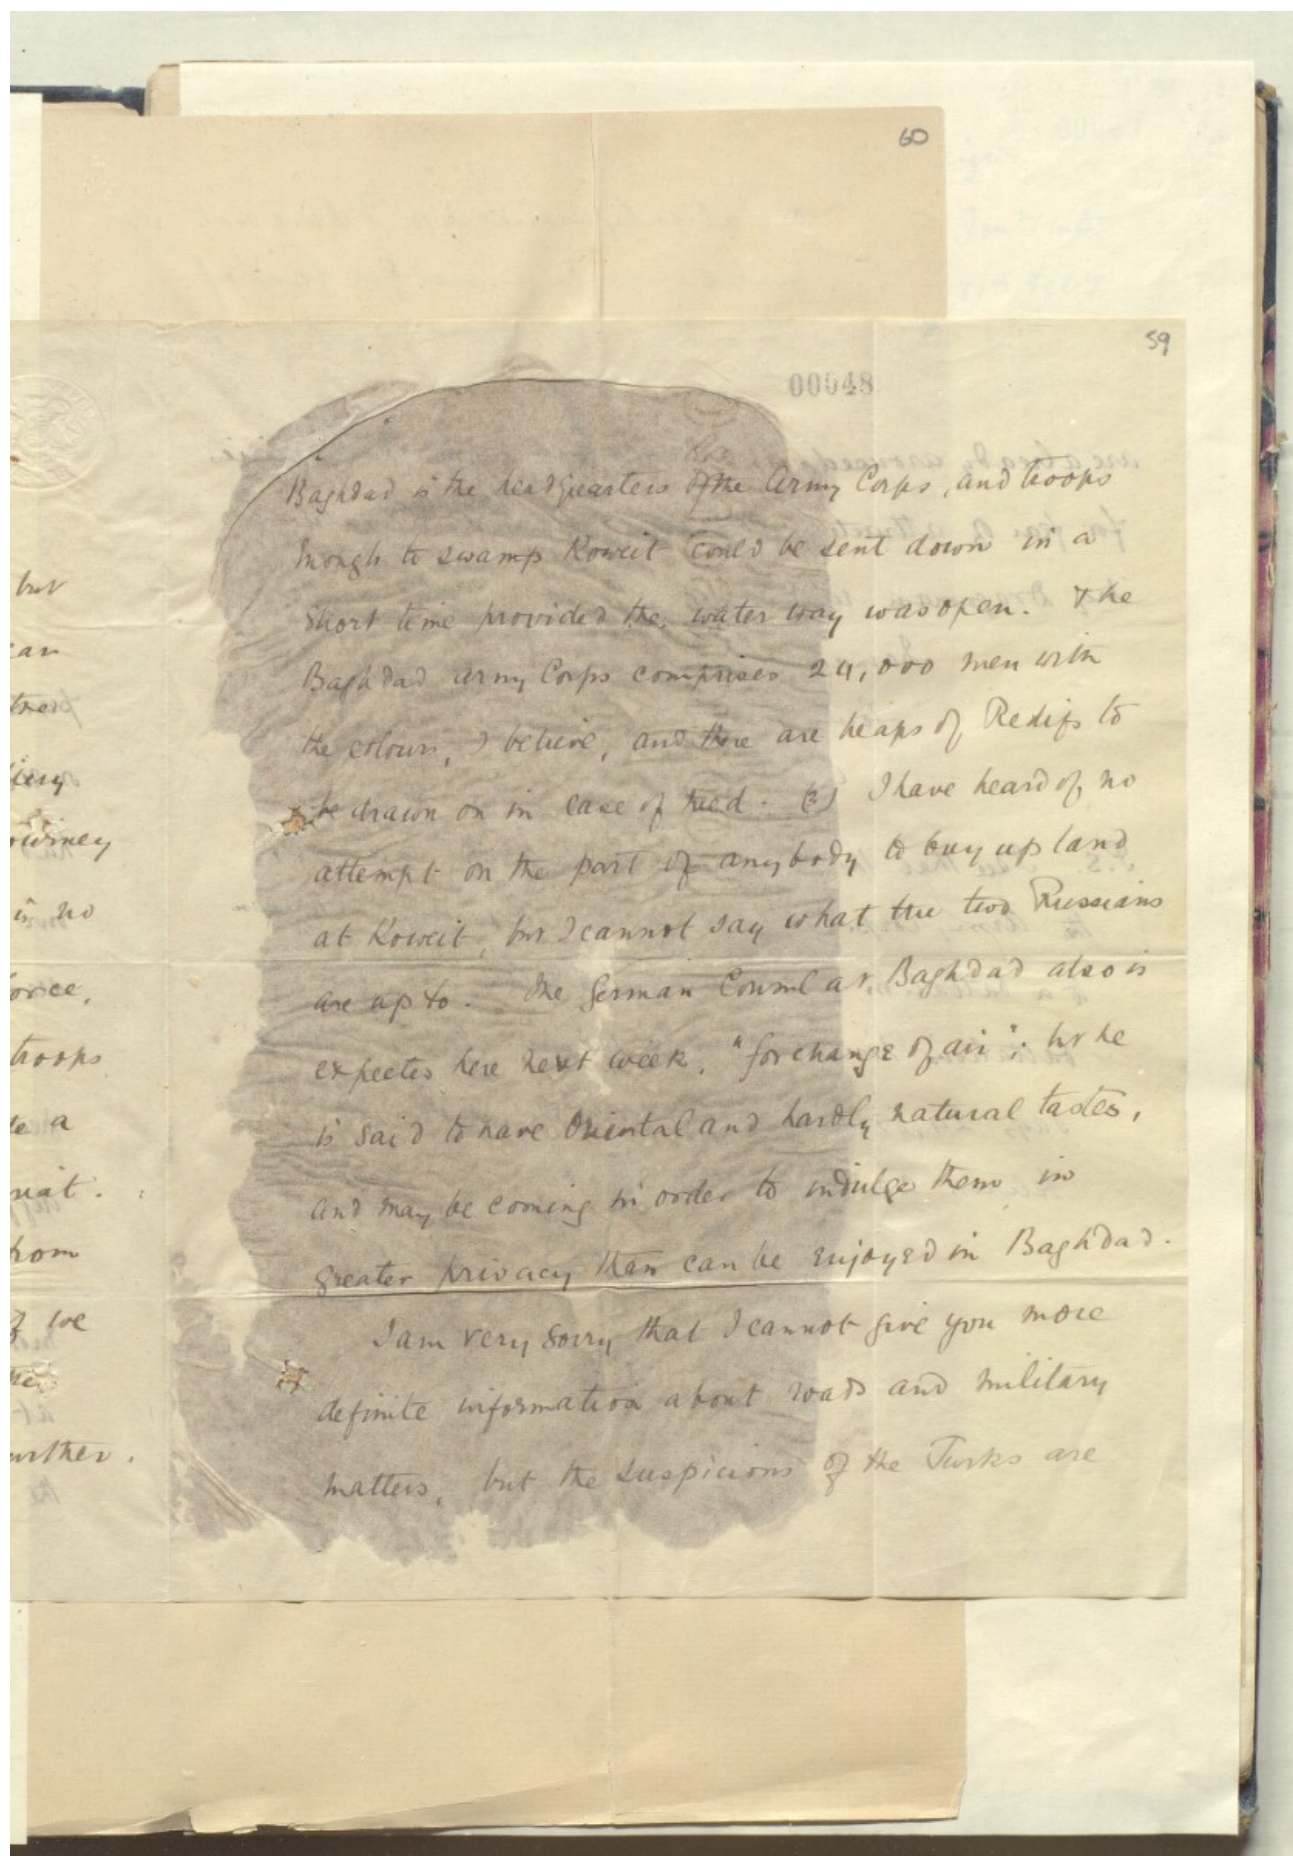 60
59
00048
Baghdad is the headquarters of the Army Corps, and troops
enough to swamp Koweit could be sent down in a
short time provided the water way was open. The
Baghdad Army Corps comprises 24,000 men with
the colours, I believe, and there are heaps of Redifs to
be drawn on in case of need. (3) I have heard of no
attempt on the part of anybody to buy up land
at Koweit, but I cannot say what the two Russians
are up to. The German Consul at Baghdad also is
expected here next week, "for change of air"; but he
is said to have Oriental and hardly natural tastes,
and may be coming in order to indulge them in
greater privacy than can be enjoyed in Baghdad.
I am very sorry that I cannot give you more
definite information about roads and military
matters, but the suspicions of the Turks are
but
an
in no
troops
a
we